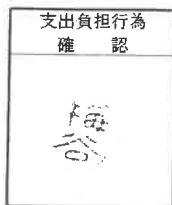 支出負担行為
確　認